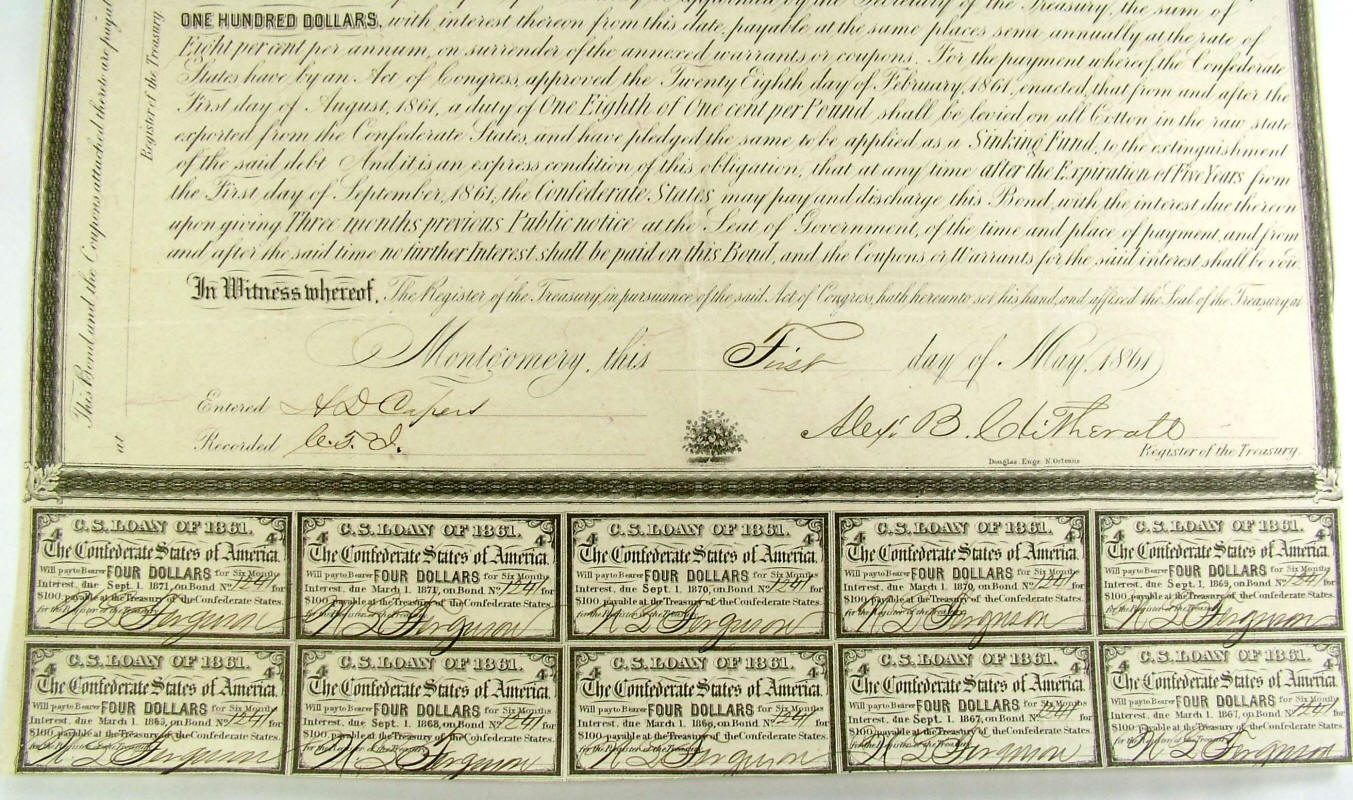 by the Secretary of the Treasury, the sum of
ONE HUNDRED DOLLARS, with interest thereon from this date, payable at the same places semi annually at the rate of
Eight per cent per annum, on surrender of the annexed warrants or coupons. For the payment whereof, the Confederate
States have by an Act of Congress, approved the Twenty Eighth day of February, 1861, enacted, that from and after the
First day of August, 1861, a duty of One Eighth of One cent per Pound shall be levied on all Cotton in the raw state
exported from the Confederate States, and have pledged the same to be applied as a Sinking Fund, to the extinguishment
of the said debt And it is an express condition of this obligation, that at any time after the Expiration of Five Years from
the First day of September, 1861, the Confederate States may pay and discharge this Bond, with the interest due thereon
upon giving Three months previous Public notice at the Seat of Government, of the time and place of payment, and from
and after the said time no further Interest shall be paid on this Bond, and the Coupons or Warrants for the said interest shall be void.
In Witness whereof, The Register of the Treasury, in pursuance of the said Act of Congress, hath hereunto set his hand, and affixed the Seal of the Treasury, at
Montgomery, this First day of May, 1861
Entered H D Capers
Recorded C. T. J.
Alex. B. Clitherall
Register of the Treasury.
Douglas. Engr. N. Orleans
This Bond and the Coupons attached thereto are payable
at
Register of the Treasury.
C.S. LOAN OF 1861.
4 4
The Confederate States of America.
Will pay to Bearer FOUR DOLLARS for Six Months
Interest, due Sept. 1. 1871, on Bond No. 1241 for
$100, payable at the Treasury of the Confederate States.
for the Register of the Treasury
R L Ferguson
C.S. LOAN OF 1861.
4 4
The Confederate States of America.
Will pay to Bearer FOUR DOLLARS for Six Months
Interest, due March 1. 1871, on Bond No. 1241 for
$100, payable at the Treasury of the Confederate States.
for the Register of the Treasury
R L Ferguson
C.S. LOAN OF 1861.
4 4
The Confederate States of America.
Will pay to Bearer FOUR DOLLARS for Six Months
Interest, due Sept. 1. 1870, on Bond No. 1241 for
$100, payable at the Treasury of the Confederate States.
for the Register of the Treasury
R L Ferguson
C.S. LOAN OF 1861.
4 4
The Confederate States of America.
Will pay to Bearer FOUR DOLLARS for Six Months
Interest, due March 1. 1870, on Bond No. 1241 for
$100, payable at the Treasury of the Confederate States.
for the Register of the Treasury
R L Ferguson
C.S. LOAN OF 1861.
4 4
The Confederate States of America.
Will pay to Bearer FOUR DOLLARS for Six Months
Interest, due Sept. 1. 1869, on Bond No. 1241 for
$100, payable at the Treasury of the Confederate States.
for the Register of the Treasury
R L Ferguson
C.S. LOAN OF 1861.
4 4
The Confederate States of America.
Will pay to Bearer FOUR DOLLARS for Six Months
Interest, due March 1. 1869, on Bond No. 1241 for
$100, payable at the Treasury of the Confederate States.
for the Register of the Treasury
R L Ferguson
C.S. LOAN OF 1861.
4 4
The Confederate States of America.
Will pay to Bearer FOUR DOLLARS for Six Months
Interest, due Sept. 1. 1868, on Bond No. 1241 for
$100, payable at the Treasury of the Confederate States.
for the Register of the Treasury
R L Ferguson
C.S. LOAN OF 1861.
4 4
The Confederate States of America.
Will pay to Bearer FOUR DOLLARS for Six Months
Interest, due March 1. 1868, on Bond No. 1241 for
$100, payable at the Treasury of the Confederate States.
for the Register of the Treasury
R L Ferguson
C.S. LOAN OF 1861.
4 4
The Confederate States of America.
Will pay to Bearer FOUR DOLLARS for Six Months
Interest, due Sept. 1. 1867, on Bond No. 1241 for
$100, payable at the Treasury of the Confederate States.
for the Register of the Treasury
R L Ferguson
C.S. LOAN OF 1861.
4 4
The Confederate States of America.
Will pay to Bearer FOUR DOLLARS for Six Months
Interest, due March 1. 1867, on Bond No. 1241 for
$100, payable at the Treasury of the Confederate States.
for the Register of the Treasury
R L Ferguson